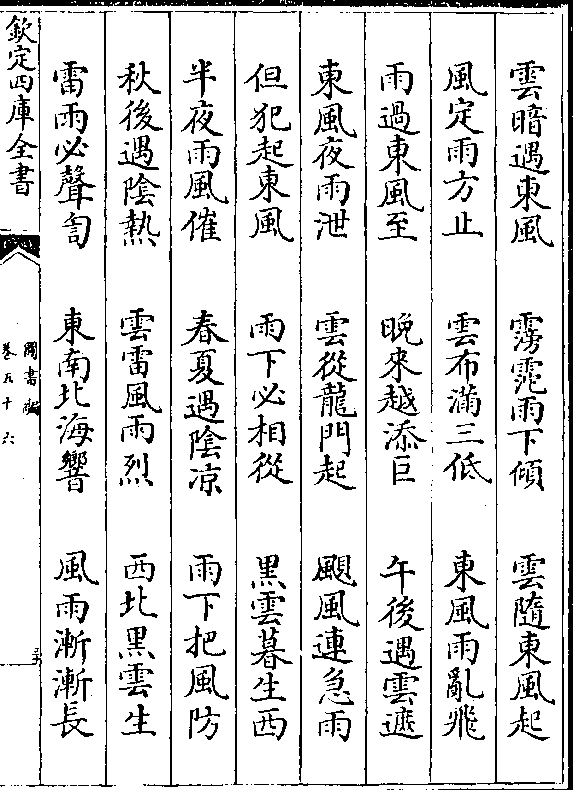 雲暗遇東風　霶霓雨下傾　雲隨東風起
風定雨方止　雲布滿三低　東風雨亂飛
雨過東風至　晚來越添巨　午後遇雲遮
東風夜雨泄　雲從龍門起　颶風連急雨
但犯起東風　雨下必相從　黑雲暮生西
半夜雨風催　春夏遇陰凉　雨下把風防
秋後遇陰熱　雲雷風雨烈　西北黑雲生
雷雨必聲訇　東南北海響　風雨漸漸長
欽定四庫全書
圖書編
卷五十六